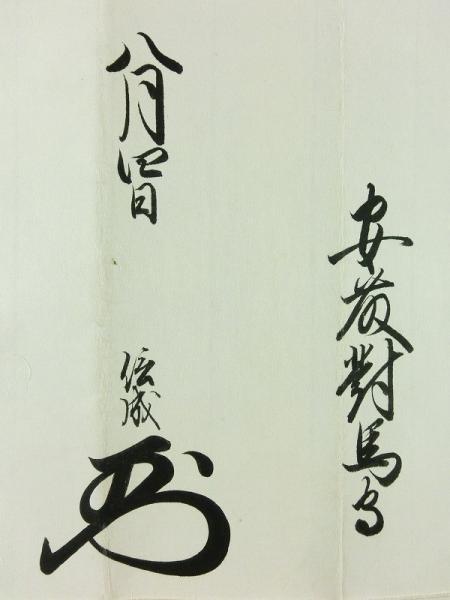 安藤對馬守
八月四日
信成